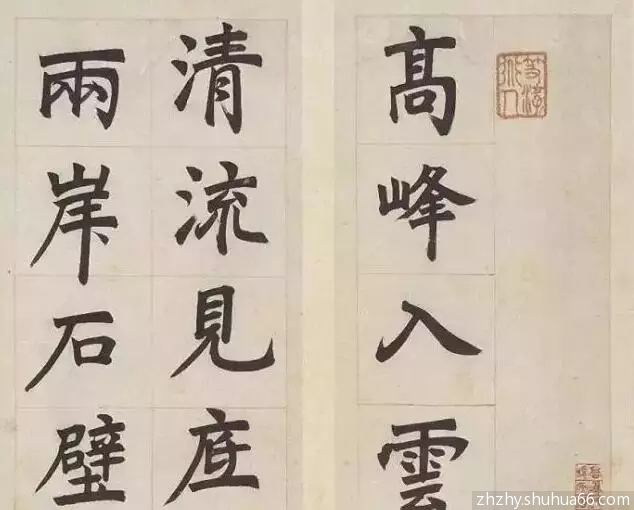 高峰入雲
清流見底
兩岸石壁
zhzhy.shuhua66.com